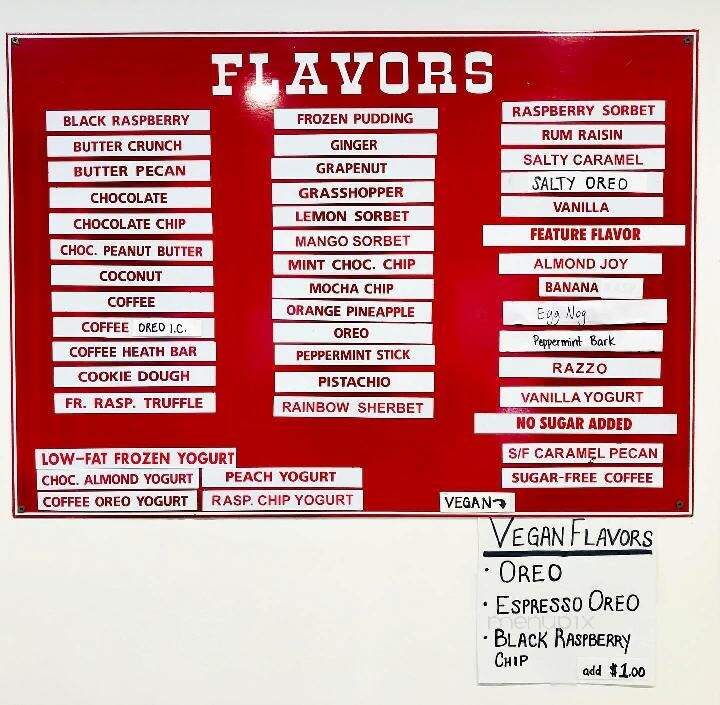 FLAVORS
BLACK RASPBERRY
BUTTER CRUNCH
BUTTER PECAN
CHOCOLATE
CHOCOLATE CHIP
CHOC. PEANUT BUTTER
COCONUT
COFFEE
COFFEE OREO I.C.
COFFEE HEATH BAR
COOKIE DOUGH
FR. RASP. TRUFFLE
FROZEN PUDDING
GINGER
GRAPENUT
GRASSHOPPER
LEMON SORBET
MANGO SORBET
MINT CHOC. CHIP
MOCHA CHIP
ORANGE PINEAPPLE
OREO
PEPPERMINT STICK
PISTACHIO
RAINBOW SHERBET
RASPBERRY SORBET
RUM RAISIN
SALTY CARAMEL
SALTY OREO
VANILLA
FEATURE FLAVOR
ALMOND JOY
BANANA
Egg Nog
Peppermint Bark
RAZZO
VANILLA YOGURT
NO SUGAR ADDED
S/F CARAMEL PECAN
SUGAR-FREE COFFEE
LOW-FAT FROZEN YOGURT
CHOC. ALMOND YOGURT
COFFEE OREO YOGURT
PEACH YOGURT
RASP. CHIP YOGURT
VEGAN
VEGAN FLAVORS
• OREO
• ESPRESSO OREO
• BLACK RASPBERRY
CHIP
add $1.00
menupix